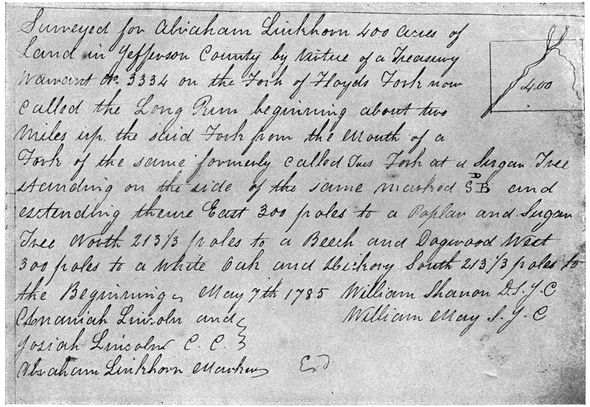 Surveyed for Abraham Linkhorn 400 acres of
Land in Jefferson County by Virtue of a Treasury
Warrant No. 3334 on the Fork of Floyds Fork now
called the Long Run beginning about two
Miles up the said Fork from the Mouth of a
Fork of the same formerly called Tues Fork at a Sugar Tree
standing on the side of the same marked SDB and
extending thence East 300 poles to a Poplar and Sugar
Tree North 213 1/3 poles to a Beech and Dogwood West
300 poles to a White Oak and Hickory South 213 1/3 poles to
the Beginning, May 7th 1785 William Shanon D.S.J.C
Ananiah Lincoln and William May S.J.C
Josiah Lincoln C.C.
Abraham Linkhorn Marker Exd
400